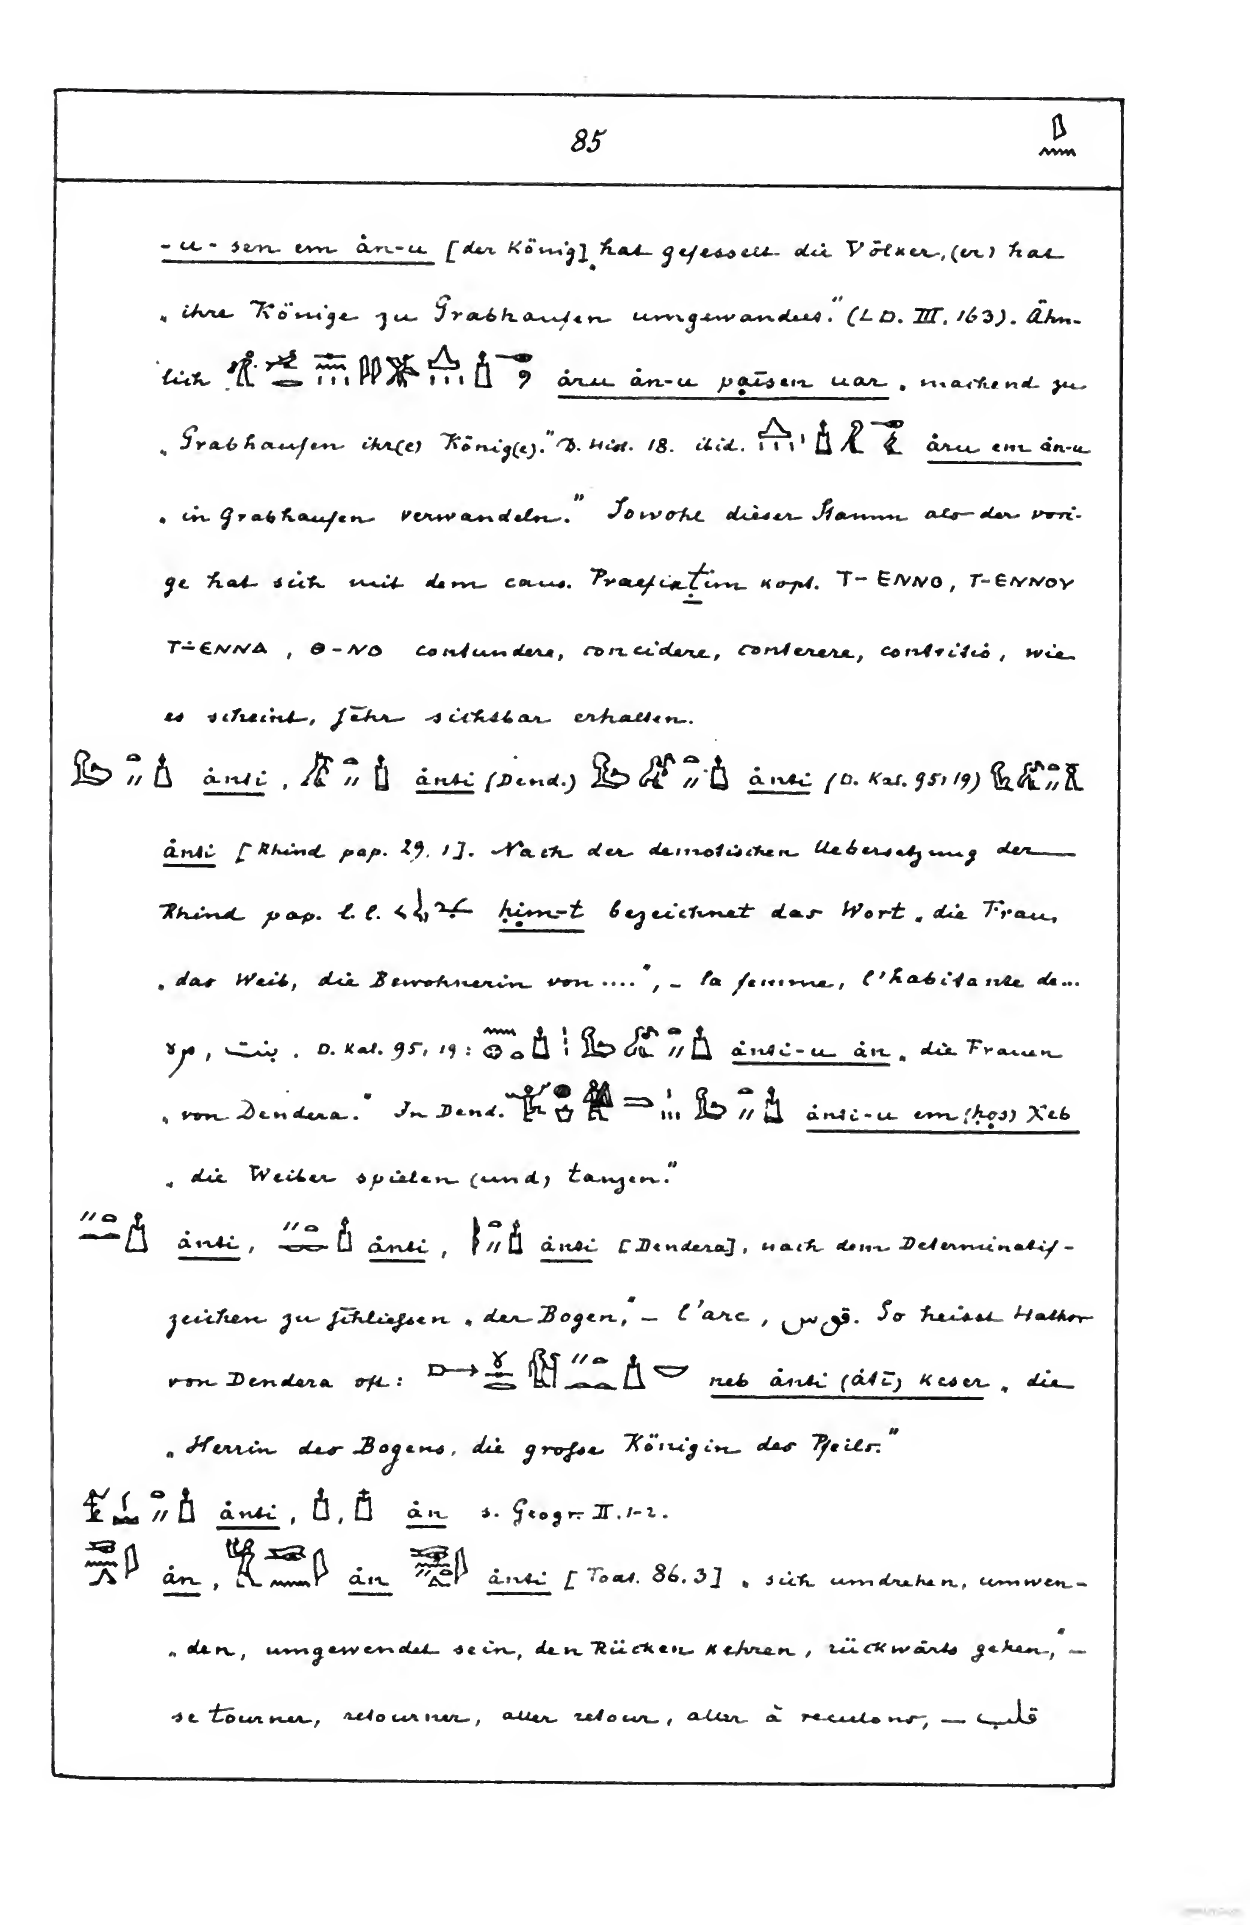 85
-u-sen em ȧn-u [der König] „hat gefesselt die Völker, (er) hat
„ihre Könige zu Grabhaufen umgewandelt.“ (LD. III, 163). Ähn-
lich ȧru ȧn-u paīsen uar „machend zu
„Grabhaufen ihr(e) König(e).“ D. Hist. 18. ibid. ȧru em ȧn-u
„in Grabhaufen verwandeln.“ Sowohl dieser Stamm als der vori-
ge hat sich mit dem caus. Praefix t im kopt. Ⲧ-ⲈⲚⲚⲞ, Ⲧ-ⲈⲚⲚⲞⲨ
Ⲧ-ⲈⲚⲚⲀ, Ⲑ-ⲚⲞ contundere, concidere, conterere, contritio, wie
es scheint, sehr sichtbar erhalten.
ȧnti, ȧnti (Dend.) ȧnti (D. Kal. 95, 19)
ȧnti [Rhind pap. 29. 1]. Nach der demotischen Uebersetzung der
Rhind pap. l. l. ḥim-t bezeichnet das Wort „die Frau,
„das Weib, die Bewohnerin von ....“, – la femme, l'habitante de...
بنت . D. Kal. 95, 19: ȧnti-u ȧn „die Frauen
„von Dendera.“ In Dend. ȧnti-u em (ḥos) Xeb
„die Weiber spielen (und) tanzen.“
ȧnti, ȧnti, ȧnti [Dendera], nach dem Determinatif-
zeichen zu schliessen „der Bogen,“ – l'arc, قوس. So heisst Hathor
von Dendera oft: neb ȧnti (ȧtī) keser „die
„Herrin des Bogens, die grosse Königin des Pfeils.“
ȧnti, ȧn s. Geogr. II. 1-2.
ȧn, ȧn ȧnti [Todt. 86. 3] „sich umdrehen, umwen-
„den, umgewendet sein, den Rücken kehren, rückwärts gehen,“ –
se tourner, retourner, aller retour, aller à reculons, – قلب